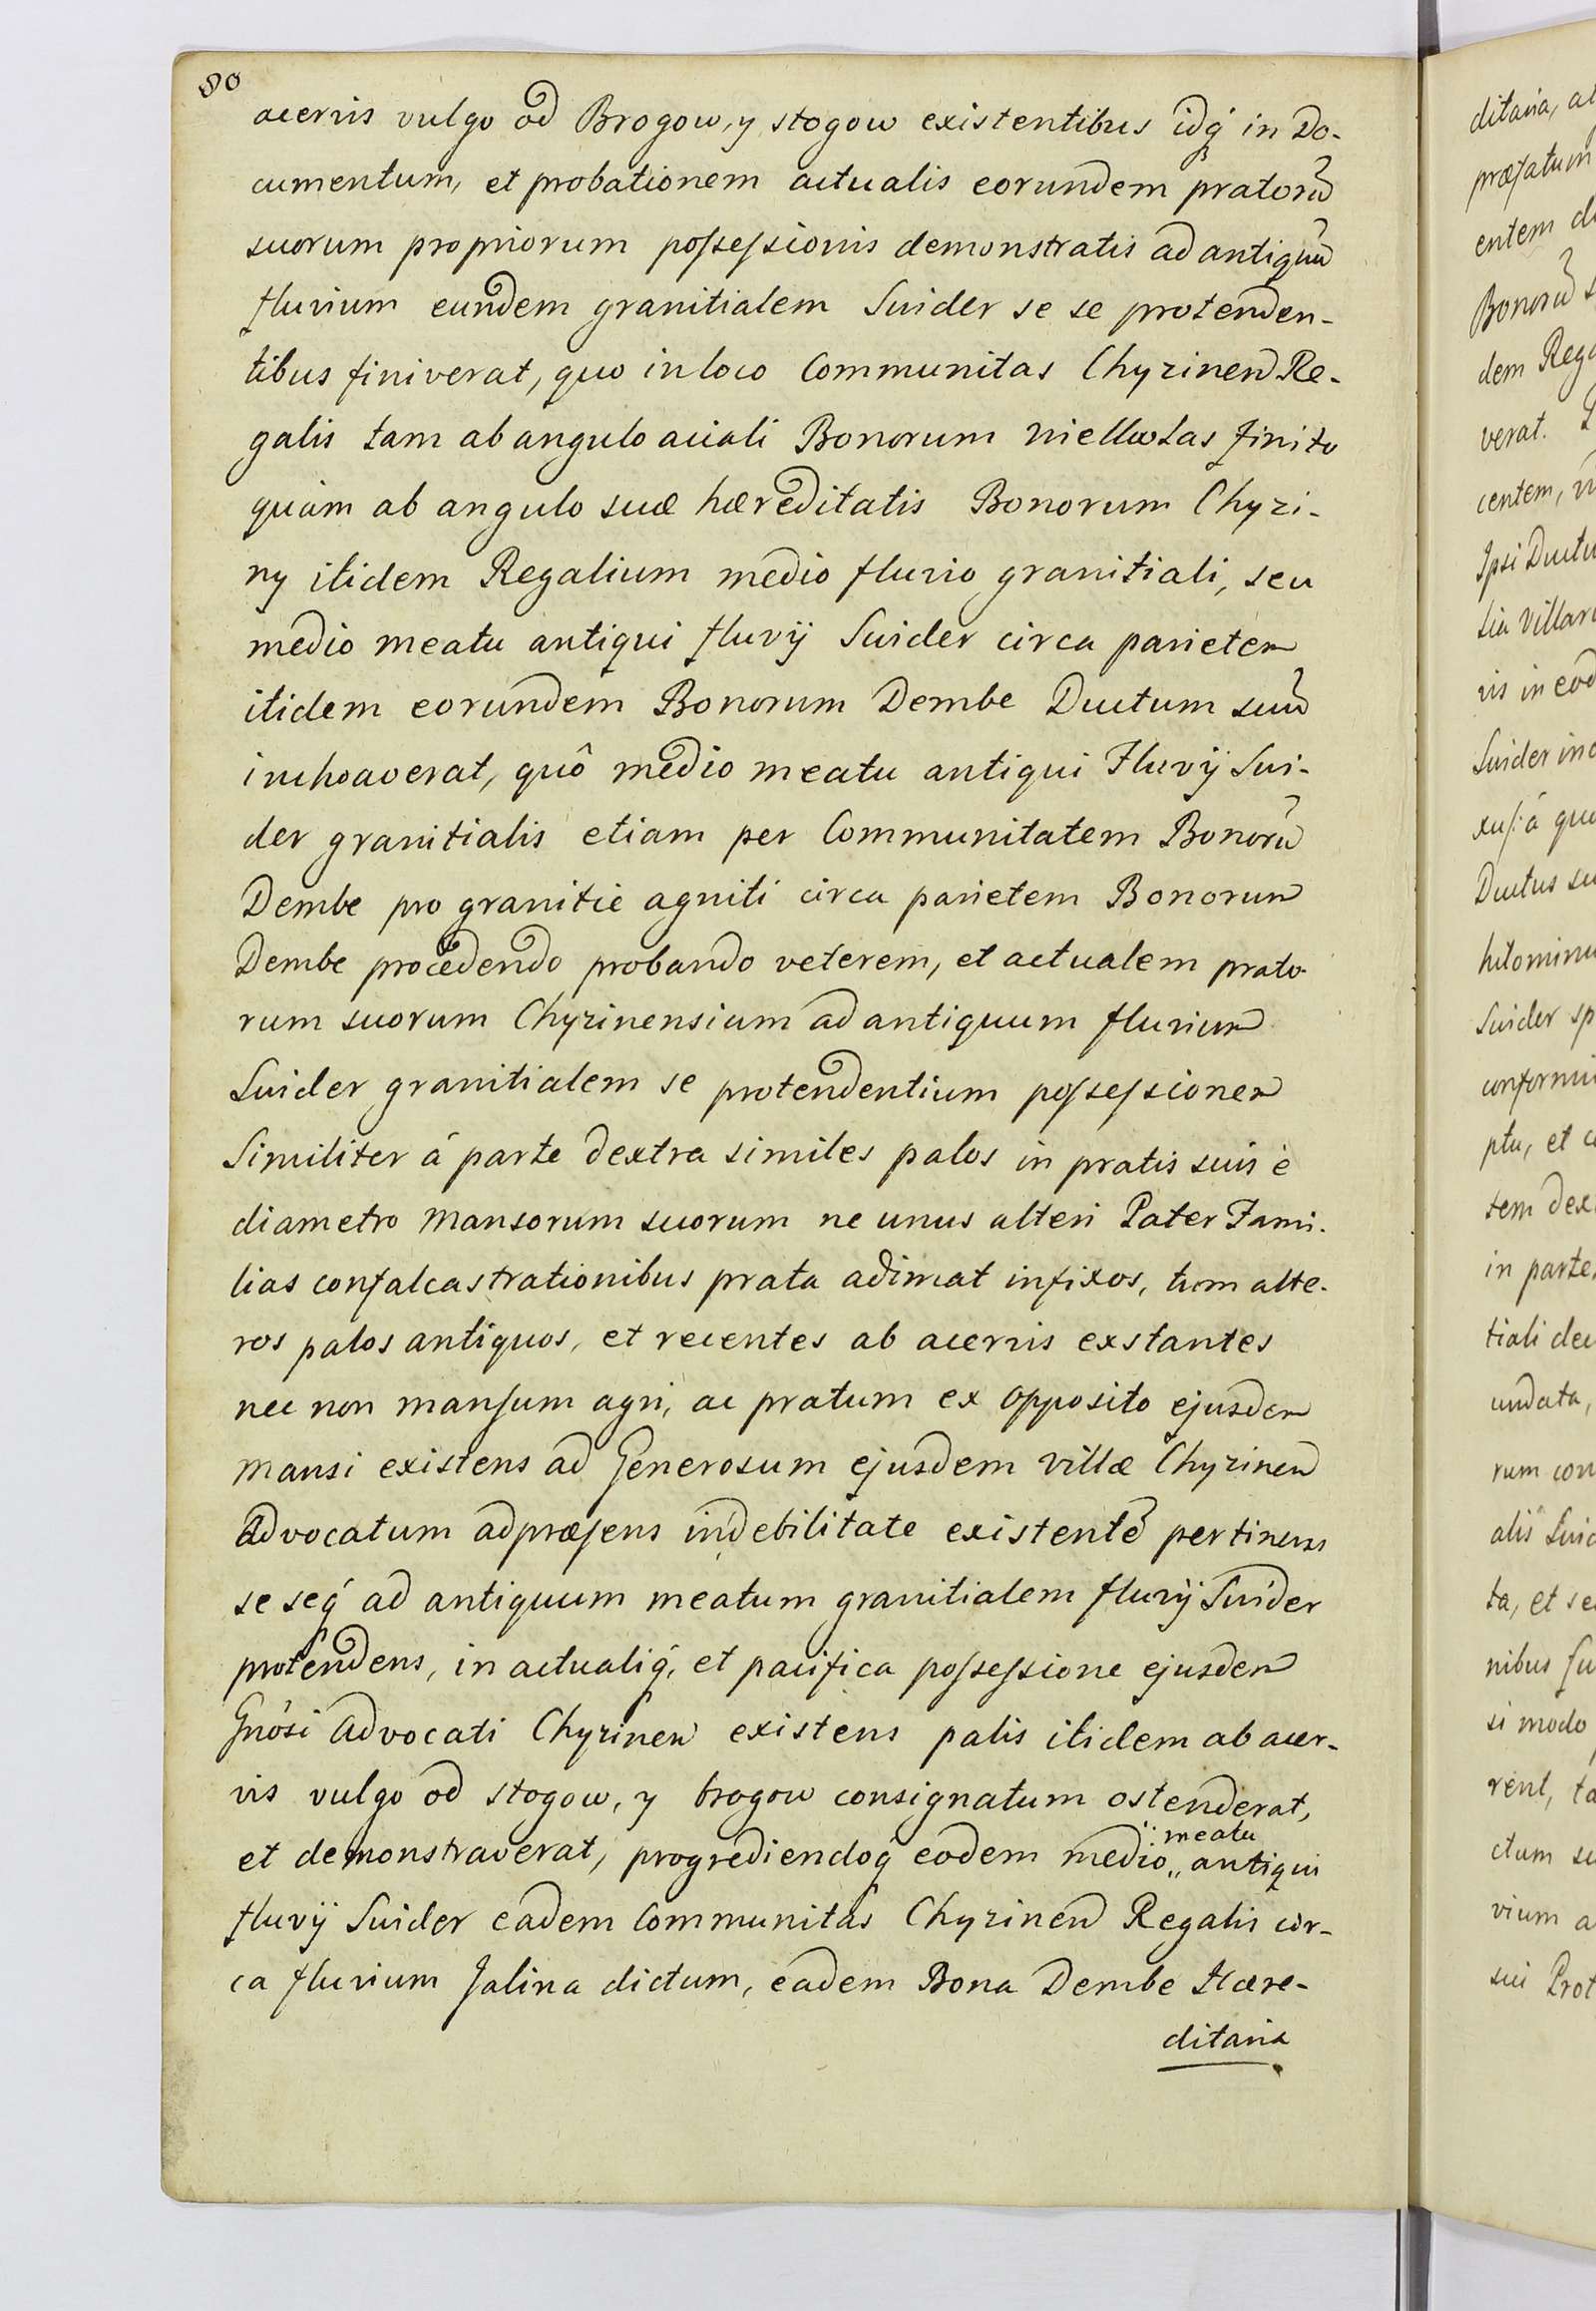 80
acervis vulgo od Brogow, y stogow existentibus idq́ in Do-
cumentum, et probationem actualis eorundem pratorũ
suorum propriorum poſseſsionis demonstratis ad antiquũ
fluvium eundem granitialem Suider se se protenden-
tibus finiverat, quo in loco Communitas Chyzinen Re-
galis tam ab angulo aciali Bonorum Wiellolas finito
quàm ab angulo suæ hæreditatis Bonorum Chyzi-
ny itidem Regalium medio fluvio granitiali, seu
medio meatu antiqui fluvÿ Suider circa parietem
itidem eorundem Bonorum Dembe Ductum suũ
inchoaverat, quô medio meatu antiqui Fluvÿ Sui-
der granitialis etiam per Communitatem Bonorũ
Dembe pro granitie agniti circa parietem Bonorum
Dembe procedendo probando veterem, et actualem prato-
rum suorum Chyzinensium ad antiquum fluvium
Suider granitialem se protendentium poſseſsionem
Similiter á parte dextra similes palos in pratis suis è
diametro Mansorum suorum ne unus alteri Pater Fami-
lias confalcastrationibus prata adimat infixos, tum alte-
ros palos antiquos, et recentes ab acervis exstantes
nec non manſum agri, ac pratum ex opposito ejusdem
Mansi existens ad Generosum ejusdem villæ Chyzinen
Advocatum ad præſens in debilitate existentẽ pertinens
se seq́ ad antiquum meatum granitialem fluvÿ Suider
protendens, in actualiq́, et pacifica poſseſsione ejusdem
Gnôsi Advocati Chyzinen existens palis itidem ab acer-
vis vulgo od stogow, y brogow consignatum ostenderat,
et demonstraverat, progrediendoq́ eodem medio „ meatu antiqui
fluvÿ Suider eadem Communitas Chyzinen Regalis cir-
ca fluvium Jalina dictum, eadem Bona Dembe Hære-
ditaria
ditaria, a
præfatum
entem d
Bonorũ s
dem Rega
verat.
centem,
Ipsi Ductu
tia Villar
is in eod
Suider inc
á qu
Ductus su
Suider sp
conformi
ptu, et c
tem dex
in parte,
tiali dec
undata,
rum con
alis Suid
ta, et se
nibus ſu
si modo
rent, ta
ctum su
vium a
sui Prot